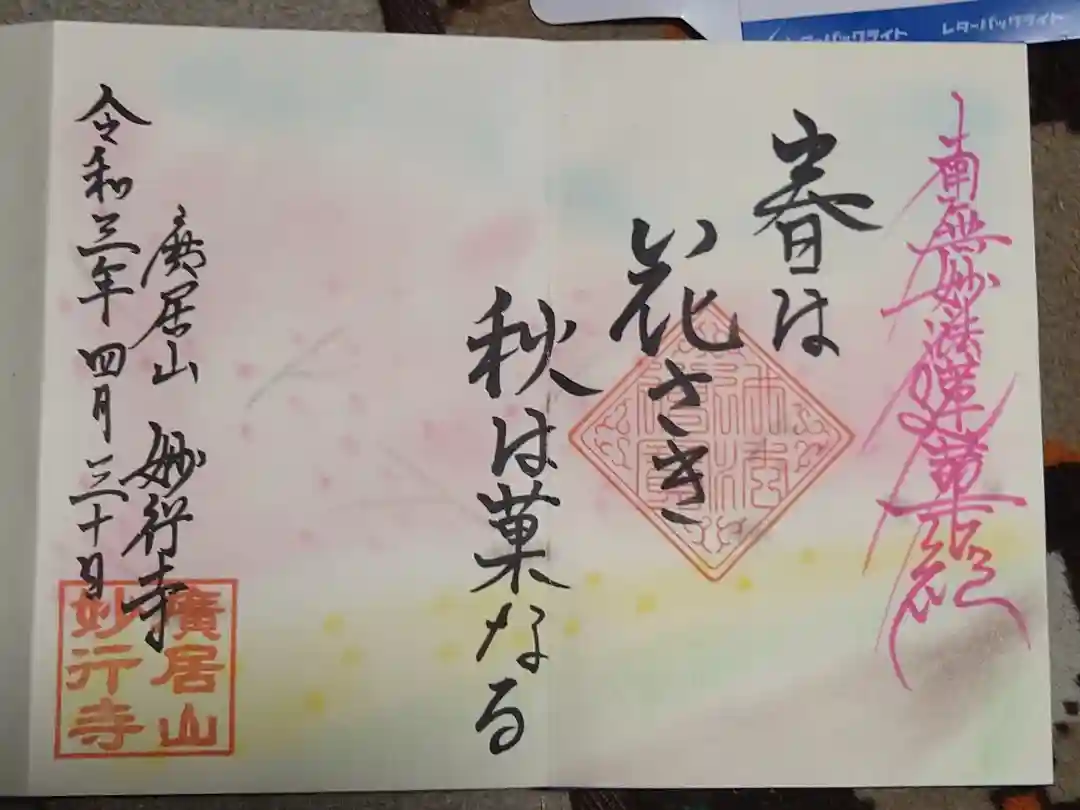 レターパックライト
レターパックライト
南無妙法蓮華経
春は
花さき
秋は菓なる
廣居山 妙行寺
令和三年四月三十日
廣居山
妙行寺